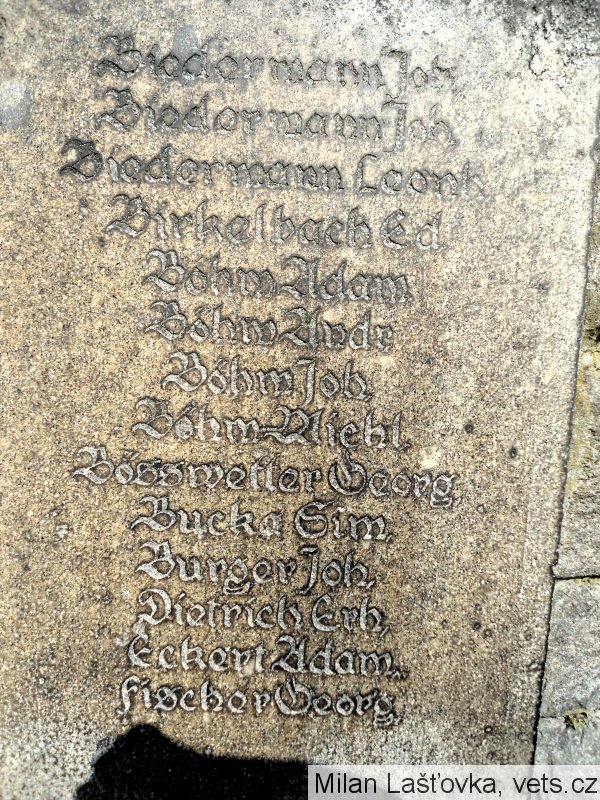 Biedermann Joh.
Biedermann Joh.
Biedermann Leonh.
Birkelbach Ed.
Böhm Adam,
Böhm Andr.
Böhm Joh.
Böhm Michl.
Bösswetter Georg,
Bucka Sim,
Burger Joh,
Dietrich Erh,
Eckert Adam,
Fischer Georg,
Milan Lašťovka, vets.cz